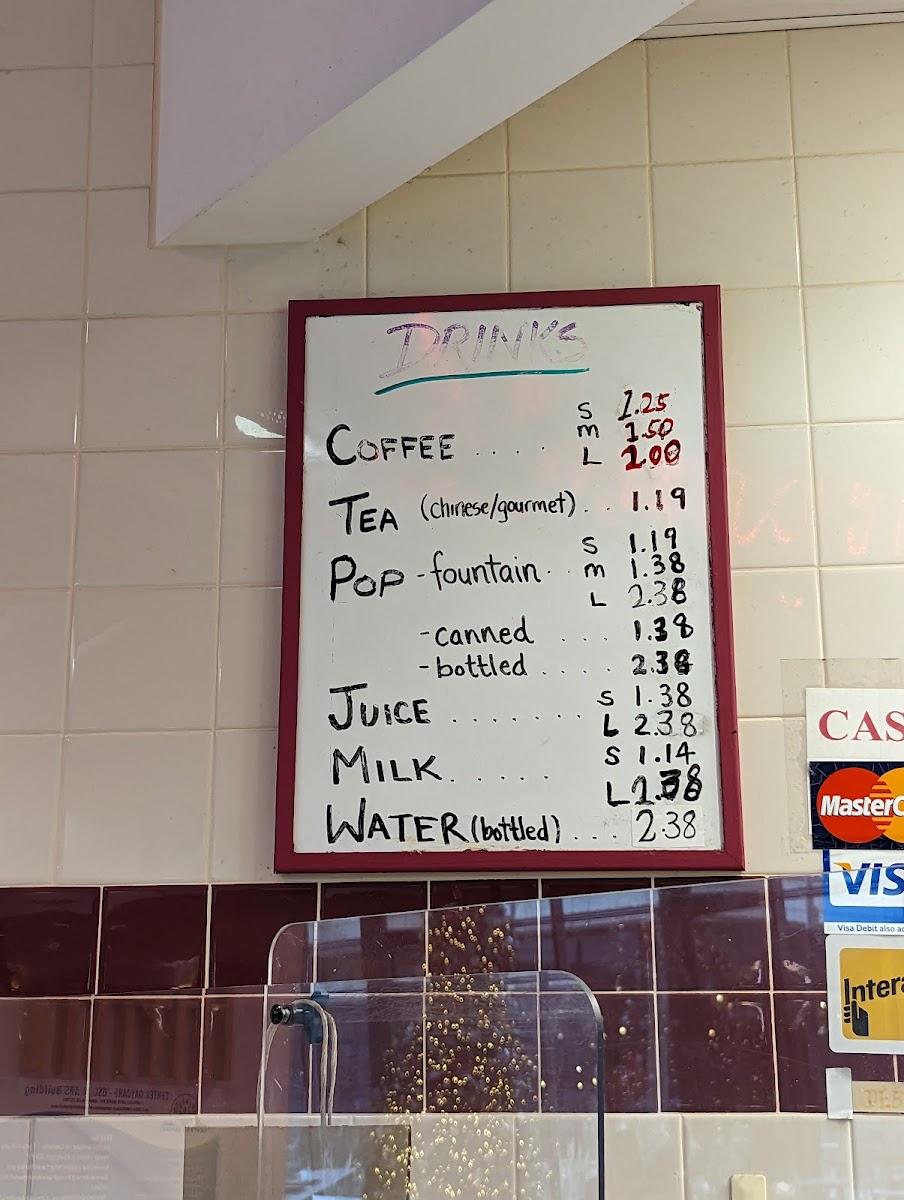 DRINKS
S 1.25
COFFEE .... M 1.50
L 2.00
TEA (chinese/gourmet) .. 1.19
S 1.19
POP - fountain .. M 1.38
L 2.38
- canned .... 1.38
- bottled .... 2.38
JUICE ....... S 1.38
L 2.38
MILK ..... S 1.14
L
WATER (bottled) ... 2.38
CAS
MasterC
VIS
Visa Debit also ac
Intera